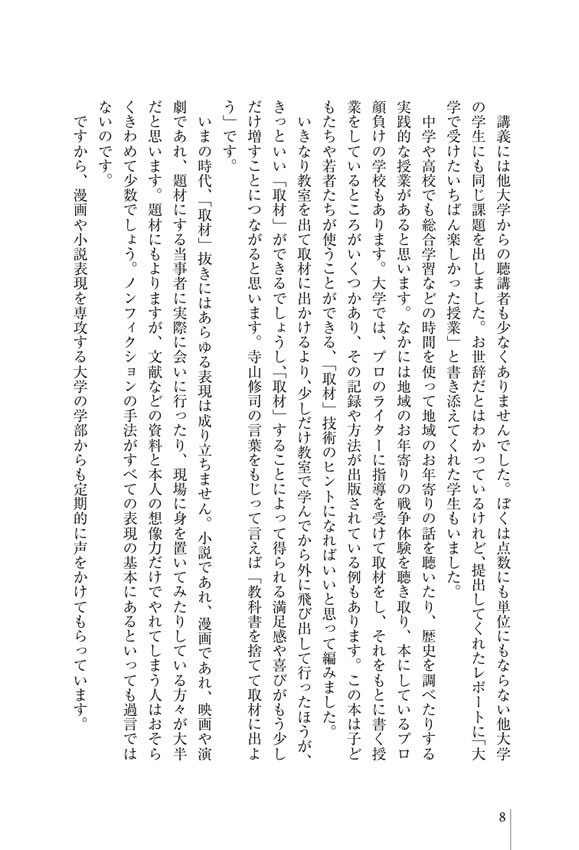 講義には他大学からの聴講者も少なくありませんでした。ぼくは点数にも単位にもならない他大学
の学生にも同じ課題を出しました。お世辞だとはわかっているけれど、提出してくれたレポートに「大
学で受けたいちばん楽しかった授業」と書き添えてくれた学生もいました。
中学や高校でも総合学習などの時間を使って地域のお年寄りの話を聴いたり、歴史を調べたりする
実践的な授業があると思います。なかには地域のお年寄りの戦争体験を聴き取り、本にしているプロ
顔負けの学校もあります。大学では、プロのライターに指導を受けて取材をし、それをもとに書く授
業をしているところがいくつかあり、その記録や方法が出版されている例もあります。この本は子ど
もたちや若者たちが使うことができる、「取材」技術のヒントになればいいと思って編みました。
いきなり教室を出て取材に出かけるより、少しだけ教室で学んでから外に飛び出して行ったほうが、
きっといい「取材」ができるでしょうし、「取材」することによって得られる満足感や喜びがもう少し
だけ増すことにつながると思います。寺山修司の言葉をもじって言えば「教科書を捨てて取材に出よ
う」です。
いまの時代、「取材」抜きにはあらゆる表現は成り立ちません。小説であれ、漫画であれ、映画や演
劇であれ、題材にする当事者に実際に会いに行ったり、現場に身を置いてみたりしている方々が大半
だと思います。題材にもよりますが、文献などの資料と本人の想像力だけでやれてしまう人はおそら
くきわめて少数でしょう。ノンフィクションの手法がすべての表現の基本にあるといっても過言では
ないのです。
ですから、漫画や小説表現を専攻する大学の学部からも定期的に声をかけてもらっています。
8